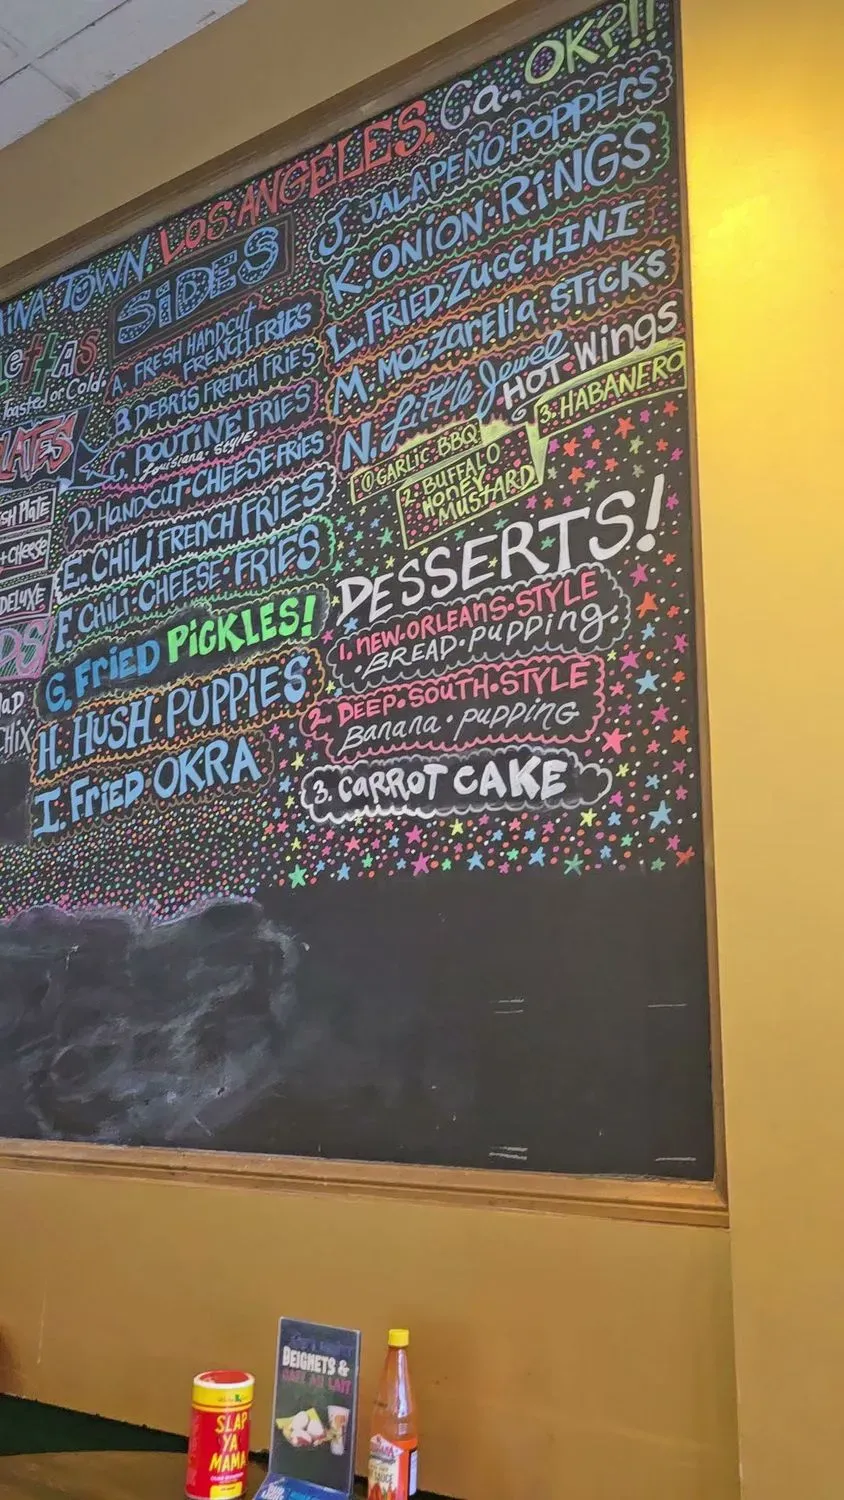 TOWN, LOS·ANGELES, Ca., OK?!!
SIDES
A. FRESH HANDCUT
FRENCH FRIES
B. DEBRIS FRENCH FRIES
C. POUTINE FRIES
Louisiana-STYLE!
D. HANDCUT·CHEESE·FRIES
E. CHILI FRENCH FRIES
F. CHILI·CHEESE·FRIES
G. FRIED PICKLES!
H. HUSH·PUPPIES
I. FRIED OKRA
J. JALAPEÑO·POPPERS
K. ONION·RINGS
L. FRIED ZUCCHINI
M. MOZZARELLA STICKS
N. Little Jewel
HOT·Wings
① GARLIC BBQ
2. BUFFALO
HONEY
MUSTARD
3. HABANERO
DESSERTS!
1. NEW·ORLEANS·STYLE
·BREAD·PUDDING·
2. DEEP·SOUTH·STYLE
Banana·PUDDING
3. CARROT CAKE
Toasted or Cold.
PLATE
CHEESE
DELUXE
BEIGNETS &
CAFE AU LAIT
SLAP
YA
MAMA
SAUCE